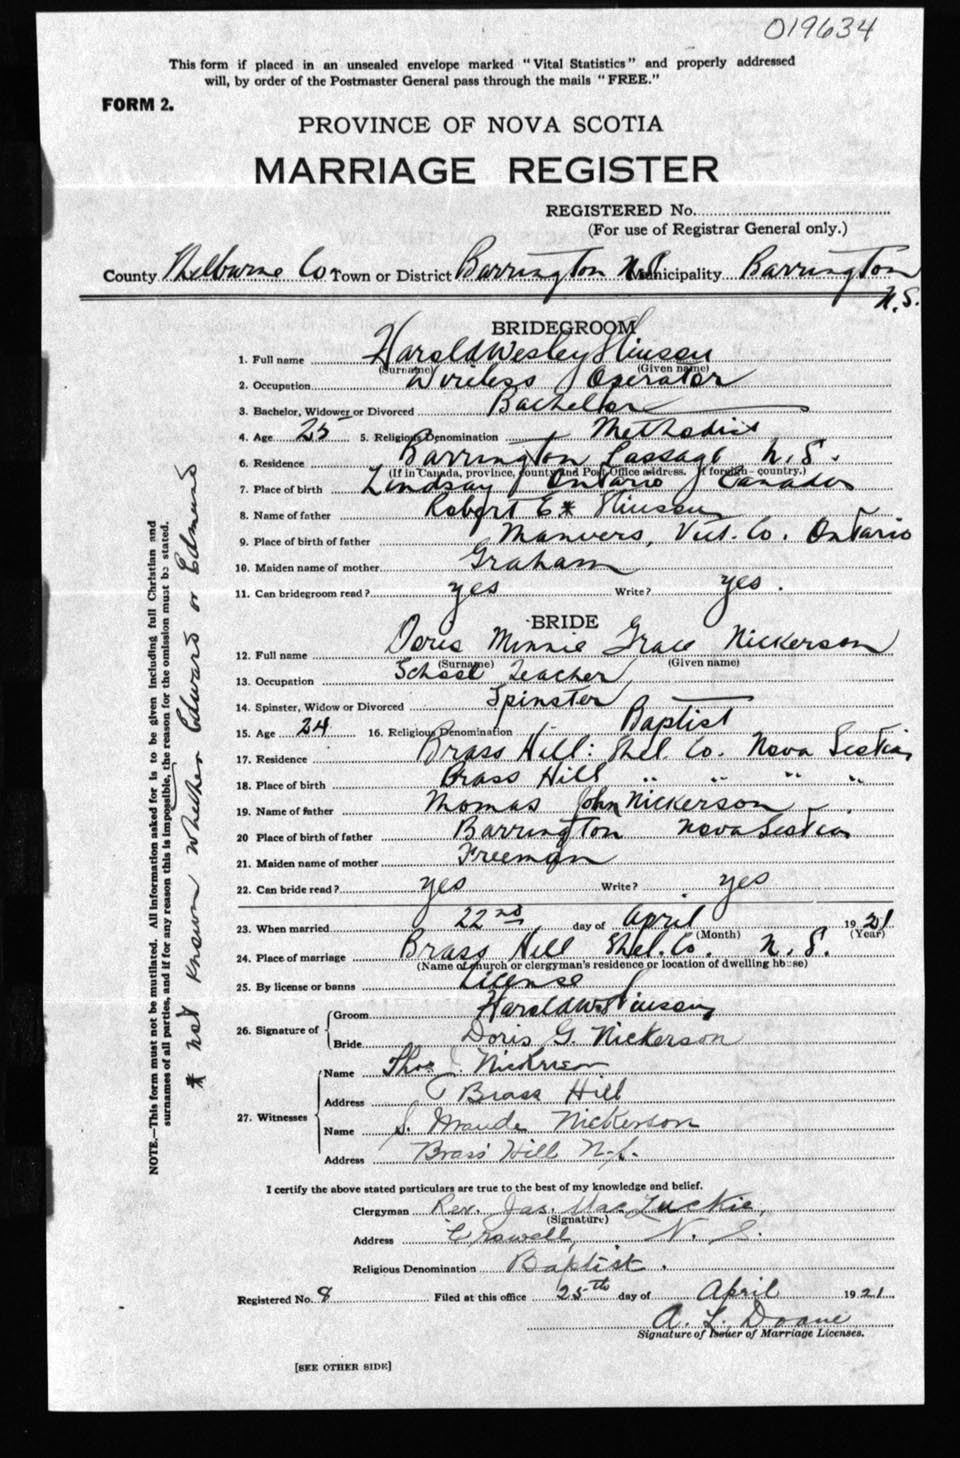 019634
This form if placed in an unsealed envelope marked "Vital Statistics" and properly addressed
will, by order of the Postmaster General pass through the mails "FREE."
FORM 2.
PROVINCE OF NOVA SCOTIA
MARRIAGE REGISTER
REGISTERED No.
(For use of Registrar General only.)
County Shelburne Co Town or District Barrington N.S. Municipality Barrington
N.S.
BRIDEGROOM
1. Full name Harold Wesley Stinson
(Surname) (Given name)
2. Occupation Wireless Operator
3. Bachelor, Widower or Divorced Bachelor
4. Age 25 5. Religious Denomination Methodist
6. Residence Barrington Passage N.S.
(If in Canada, province, county and Post Office address. If foreign - country.)
7. Place of birth Lindsay Ontario Canada
8. Name of father Robert E* Stinson
9. Place of birth of father Manvers, Vict. Co. Ontario
10. Maiden name of mother Graham
11. Can bridegroom read? yes Write? yes.
BRIDE
12. Full name Doris Minnie Grace Nickerson
(Surname) (Given name)
13. Occupation School Teacher
14. Spinster, Widow or Divorced Spinster
15. Age 24 16. Religious Denomination Baptist
17. Residence Brass Hill: Shel. Co. Nova Scotia
18. Place of birth Brass Hill " " " "
19. Name of father Thomas John Nickerson
20 Place of birth of father Barrington Nova Scotia
21. Maiden name of mother Freeman
22. Can bride read? yes Write? yes
23. When married 22nd day of April 1921
(Month) (Year)
24. Place of marriage Brass Hill Shel. Co. N.S.
(Name of church or clergyman's residence or location of dwelling house)
25. By license or banns License
26. Signature of Groom Harold W Stinson
Bride Doris G. Nickerson
27. Witnesses Name Thos J. Nickerson
Address Brass Hill
Name S. Maude Nickerson
Address Brass Hill N.S.
I certify the above stated particulars are true to the best of my knowledge and belief.
Clergyman Rev. Jas. MacLuckie,
(Signature)
Address Crowell, N.S.
Religious Denomination Baptist.
Registered No. 8 Filed at this office 25th day of April 1921
A. L. Doane
Signature of Issuer of Marriage Licenses.
[SEE OTHER SIDE]
NOTE.—This form must not be mutilated. All information asked for is to be given including full Christian and
surnames of all parties, and if for any reason this is impossible, the reason for the omission must be stated.
* not known whether Edward or Edmund